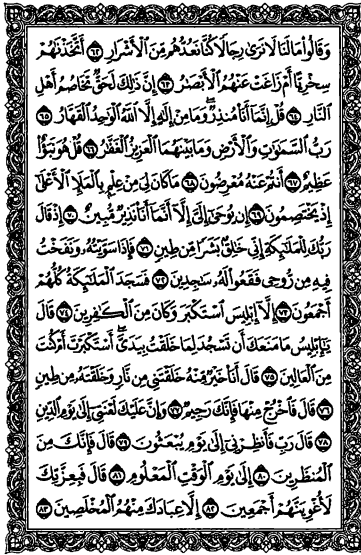 وَقَالُوا۟ مَا لَنَا لَا نَرَىٰ رِجَالًا كُنَّا نَعُدُّهُم مِّنَ ٱلْأَشْرَارِ ٦٢ أَتَّخَذْنَـٰهُمْ
سِخْرِيًّا أَمْ زَاغَتْ عَنْهُمُ ٱلْأَبْصَـٰرُ ٦٣ إِنَّ ذَٰلِكَ لَحَقٌّ تَخَاصُمُ أَهْلِ
ٱلنَّارِ ٦٤ قُلْ إِنَّمَآ أَنَا۠ مُنذِرٌ ۖ وَمَا مِنْ إِلَـٰهٍ إِلَّا ٱللَّهُ ٱلْوَٰحِدُ ٱلْقَهَّارُ ٦٥
رَبُّ ٱلسَّمَـٰوَٰتِ وَٱلْأَرْضِ وَمَا بَيْنَهُمَا ٱلْعَزِيزُ ٱلْغَفَّـٰرُ ٦٦ قُلْ هُوَ نَبَؤٌا۟
عَظِيمٌ ٦٧ أَنتُمْ عَنْهُ مُعْرِضُونَ ٦٨ مَا كَانَ لِىَ مِنْ عِلْمٍۭ بِٱلْمَلَإِ ٱلْأَعْلَىٰٓ
إِذْ يَخْتَصِمُونَ ٦٩ إِن يُوحَىٰٓ إِلَىَّ إِلَّآ أَنَّمَآ أَنَا۠ نَذِيرٌ مُّبِينٌ ٧٠ إِذْ قَالَ
رَبُّكَ لِلْمَلَـٰٓئِكَةِ إِنِّى خَـٰلِقٌۢ بَشَرًا مِّن طِينٍ ٧١ فَإِذَا سَوَّيْتُهُۥ وَنَفَخْتُ
فِيهِ مِن رُّوحِى فَقَعُوا۟ لَهُۥ سَـٰجِدِينَ ٧٢ فَسَجَدَ ٱلْمَلَـٰٓئِكَةُ كُلُّهُمْ
أَجْمَعُونَ ٧٣ إِلَّآ إِبْلِيسَ ٱسْتَكْبَرَ وَكَانَ مِنَ ٱلْكَـٰفِرِينَ ٧٤ قَالَ
يَـٰٓإِبْلِيسُ مَا مَنَعَكَ أَن تَسْجُدَ لِمَا خَلَقْتُ بِيَدَىَّ ۖ أَسْتَكْبَرْتَ أَمْ كُنتَ
مِنَ ٱلْعَالِينَ ٧٥ قَالَ أَنَا۠ خَيْرٌ مِّنْهُ ۖ خَلَقْتَنِى مِن نَّارٍ وَخَلَقْتَهُۥ مِن طِينٍ
٧٦ قَالَ فَٱخْرُجْ مِنْهَا فَإِنَّكَ رَجِيمٌ ٧٧ وَإِنَّ عَلَيْكَ لَعْنَتِىٓ إِلَىٰ يَوْمِ ٱلدِّينِ
٧٨ قَالَ رَبِّ فَأَنظِرْنِىٓ إِلَىٰ يَوْمِ يُبْعَثُونَ ٧٩ قَالَ فَإِنَّكَ مِنَ
ٱلْمُنظَرِينَ ٨٠ إِلَىٰ يَوْمِ ٱلْوَقْتِ ٱلْمَعْلُومِ ٨١ قَالَ فَبِعِزَّتِكَ
لَأُغْوِيَنَّهُمْ أَجْمَعِينَ ٨٢ إِلَّا عِبَادَكَ مِنْهُمُ ٱلْمُخْلَصِينَ ٨٣